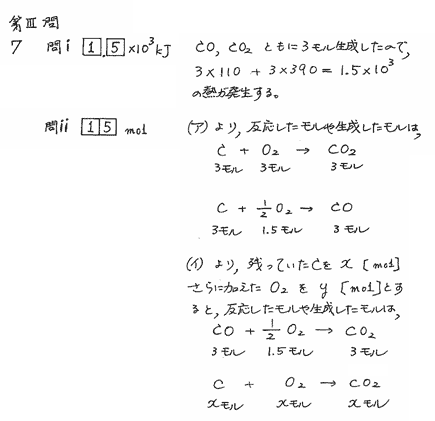 第Ⅲ問
7 問i 1.5×10³kJ CO, CO₂ ともに3モル生成したので,
3×110 + 3×390 = 1.5×10³
の熱が発生する。
問ii 15 mol (ア)より, 反応したモルや生成したモルは,
C + O₂ → CO₂
3モル 3モル 3モル
C + 1/2 O₂ → CO
3モル 1.5モル 3モル
(イ)より, 残っていたCをx [mol]
さらに加えたO₂をy [mol]とす
ると, 反応したモルや生成したモルは,
CO + 1/2 O₂ → CO₂
3モル 1.5モル 3モル
C + O₂ → CO₂
xモル xモル xモル